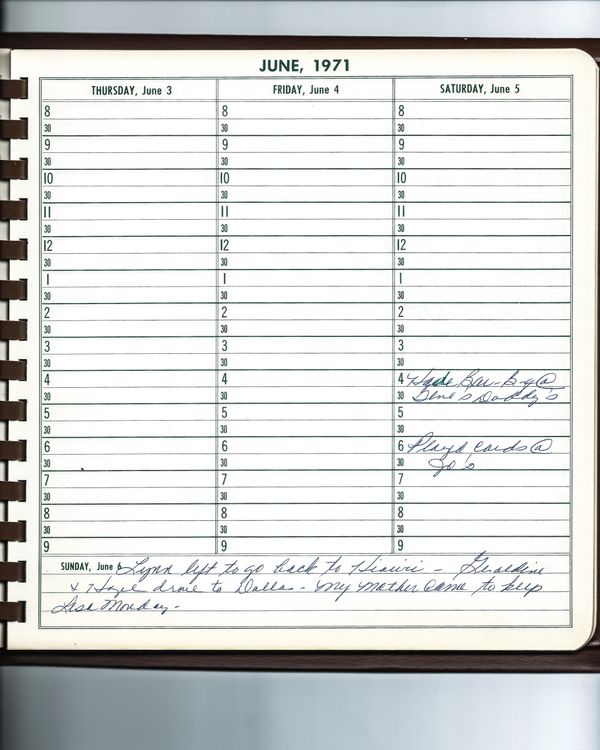 JUNE, 1971
THURSDAY, June 3
8
30
9
30
10
30
11
30
12
30
1
30
2
30
3
30
4
30
5
30
6
30
7
30
8
30
9
FRIDAY, June 4
8
30
9
30
10
30
11
30
12
30
1
30
2
30
3
30
4
30
5
30
6
30
7
30
8
30
9
SATURDAY, June 5
8
30
9
30
10
30
11
30
12
30
1
30
2
30
3
30
4 Bar-B-q @
30 Gene's Daddy's
5
30
6 Played cards @
30 Jo's
7
30
8
30
9
SUNDAY, June 6 Lynn left to go back to - Geraldine
& Hazel drove to Dallas - My mother came to keep
Lisa Monday -